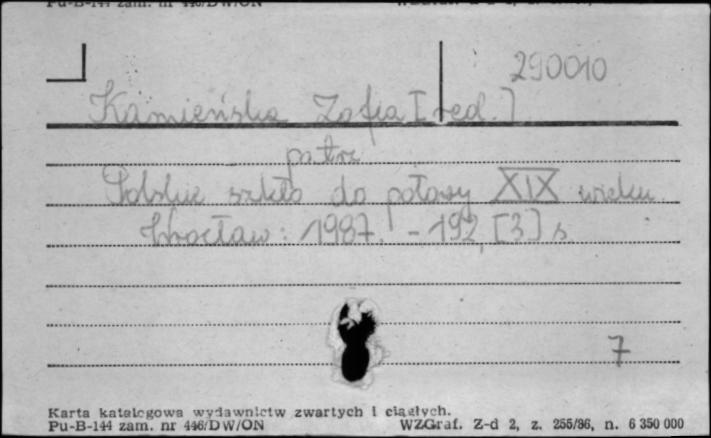 Pu-B-144 zam. nr 446/DW/ON
290010
Kamieńska Zofia [red.]
patrz
Polskie szkło do połowy XIX wieku.
Wrocław: 1987. - 192, [3] s.
7
Karta katalogowa wydawnictw zwartych i ciągłych.
Pu-B-144 zam. nr 446/DW/ON WZGraf. Z-d 2, z. 255/86, n. 6 350 000